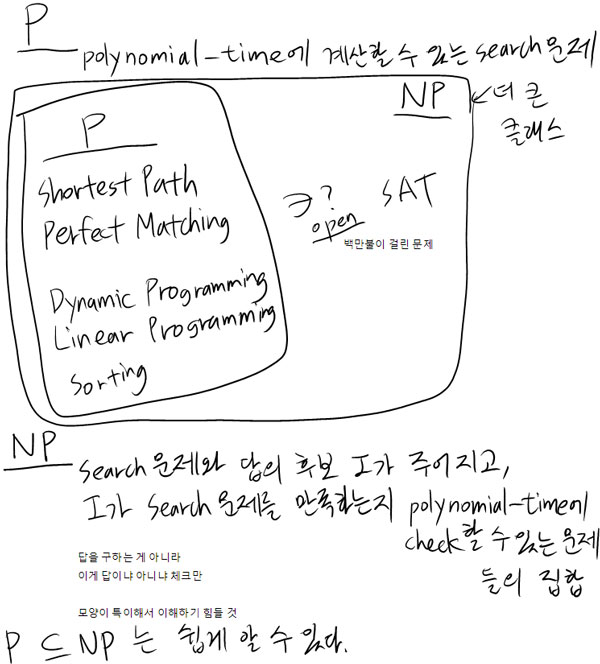 P
polynomial-time에 계산할 수 있는 search 문제
NP ← 더 큰
클래스
P
Shortest Path
Perfect Matching
Dynamic Programming
Linear Programming
Sorting
∋? SAT
open
백만불이 걸린 문제
NP
search 문제와 답의 후보 I가 주어지고,
I가 Search 문제를 만족하는지 polynomial-time에
check할 수 있는 문제
들의 집합
답을 구하는 게 아니라
이게 답이냐 아니냐 체크만
모양이 특이해서 이해하기 힘들 것
P ⊆ NP 는 쉽게 알 수 있다.